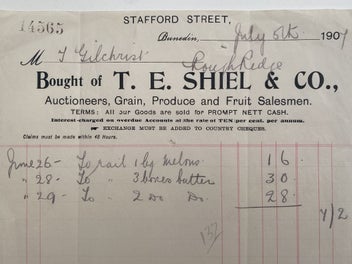 14565
STAFFORD STREET,
Dunedin, July 5th 1907
M T Gilchrist
Rough Ridge
Bought of T. E. SHIEL & CO.,
Auctioneers, Grain, Produce and Fruit Salesmen.
TERMS: All our Goods are sold for PROMPT NETT CASH.
Interest charged on overdue Accounts at the rate of TEN per cent. per annum.
EXCHANGE MUST BE ADDED TO COUNTRY CHEQUES.
Claims must be made within 48 Hours.
June 26 - To rail 1 bg melons 1 6
" 28 - To " 3 boxes butter 3 0
" 29 - To " 2 Do Do. 2 8
7/2
132